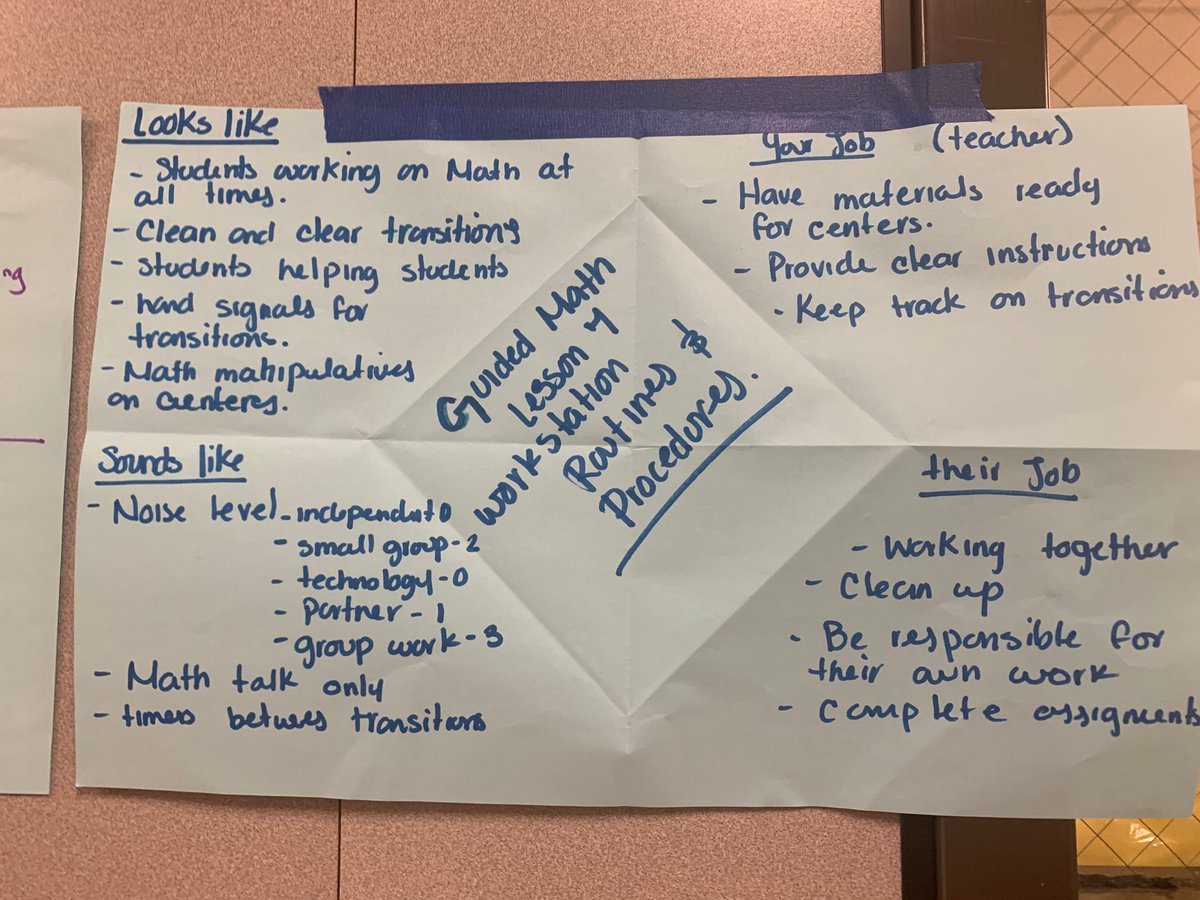 ng
Looks like
- Students working on Math at
all times.
- Clean and clear transitions
- Students helping students
- hand signals for
transitions.
- Math manipulatives
on centers.
Your Job (teacher)
- Have materials ready
for centers.
- Provide clear instructions
- Keep track on transitions
Guided Math
Lesson 4
Workstation
Routines &
Procedures.
Sounds like
- Noise level - independent 0
- small group - 2
- technology - 0
- partner - 1
- group work - 3
- Math talk only
- timers betwees transitions
their Job
- Working together
- Clean up
- Be responsible for
their own work
- Complete assignments